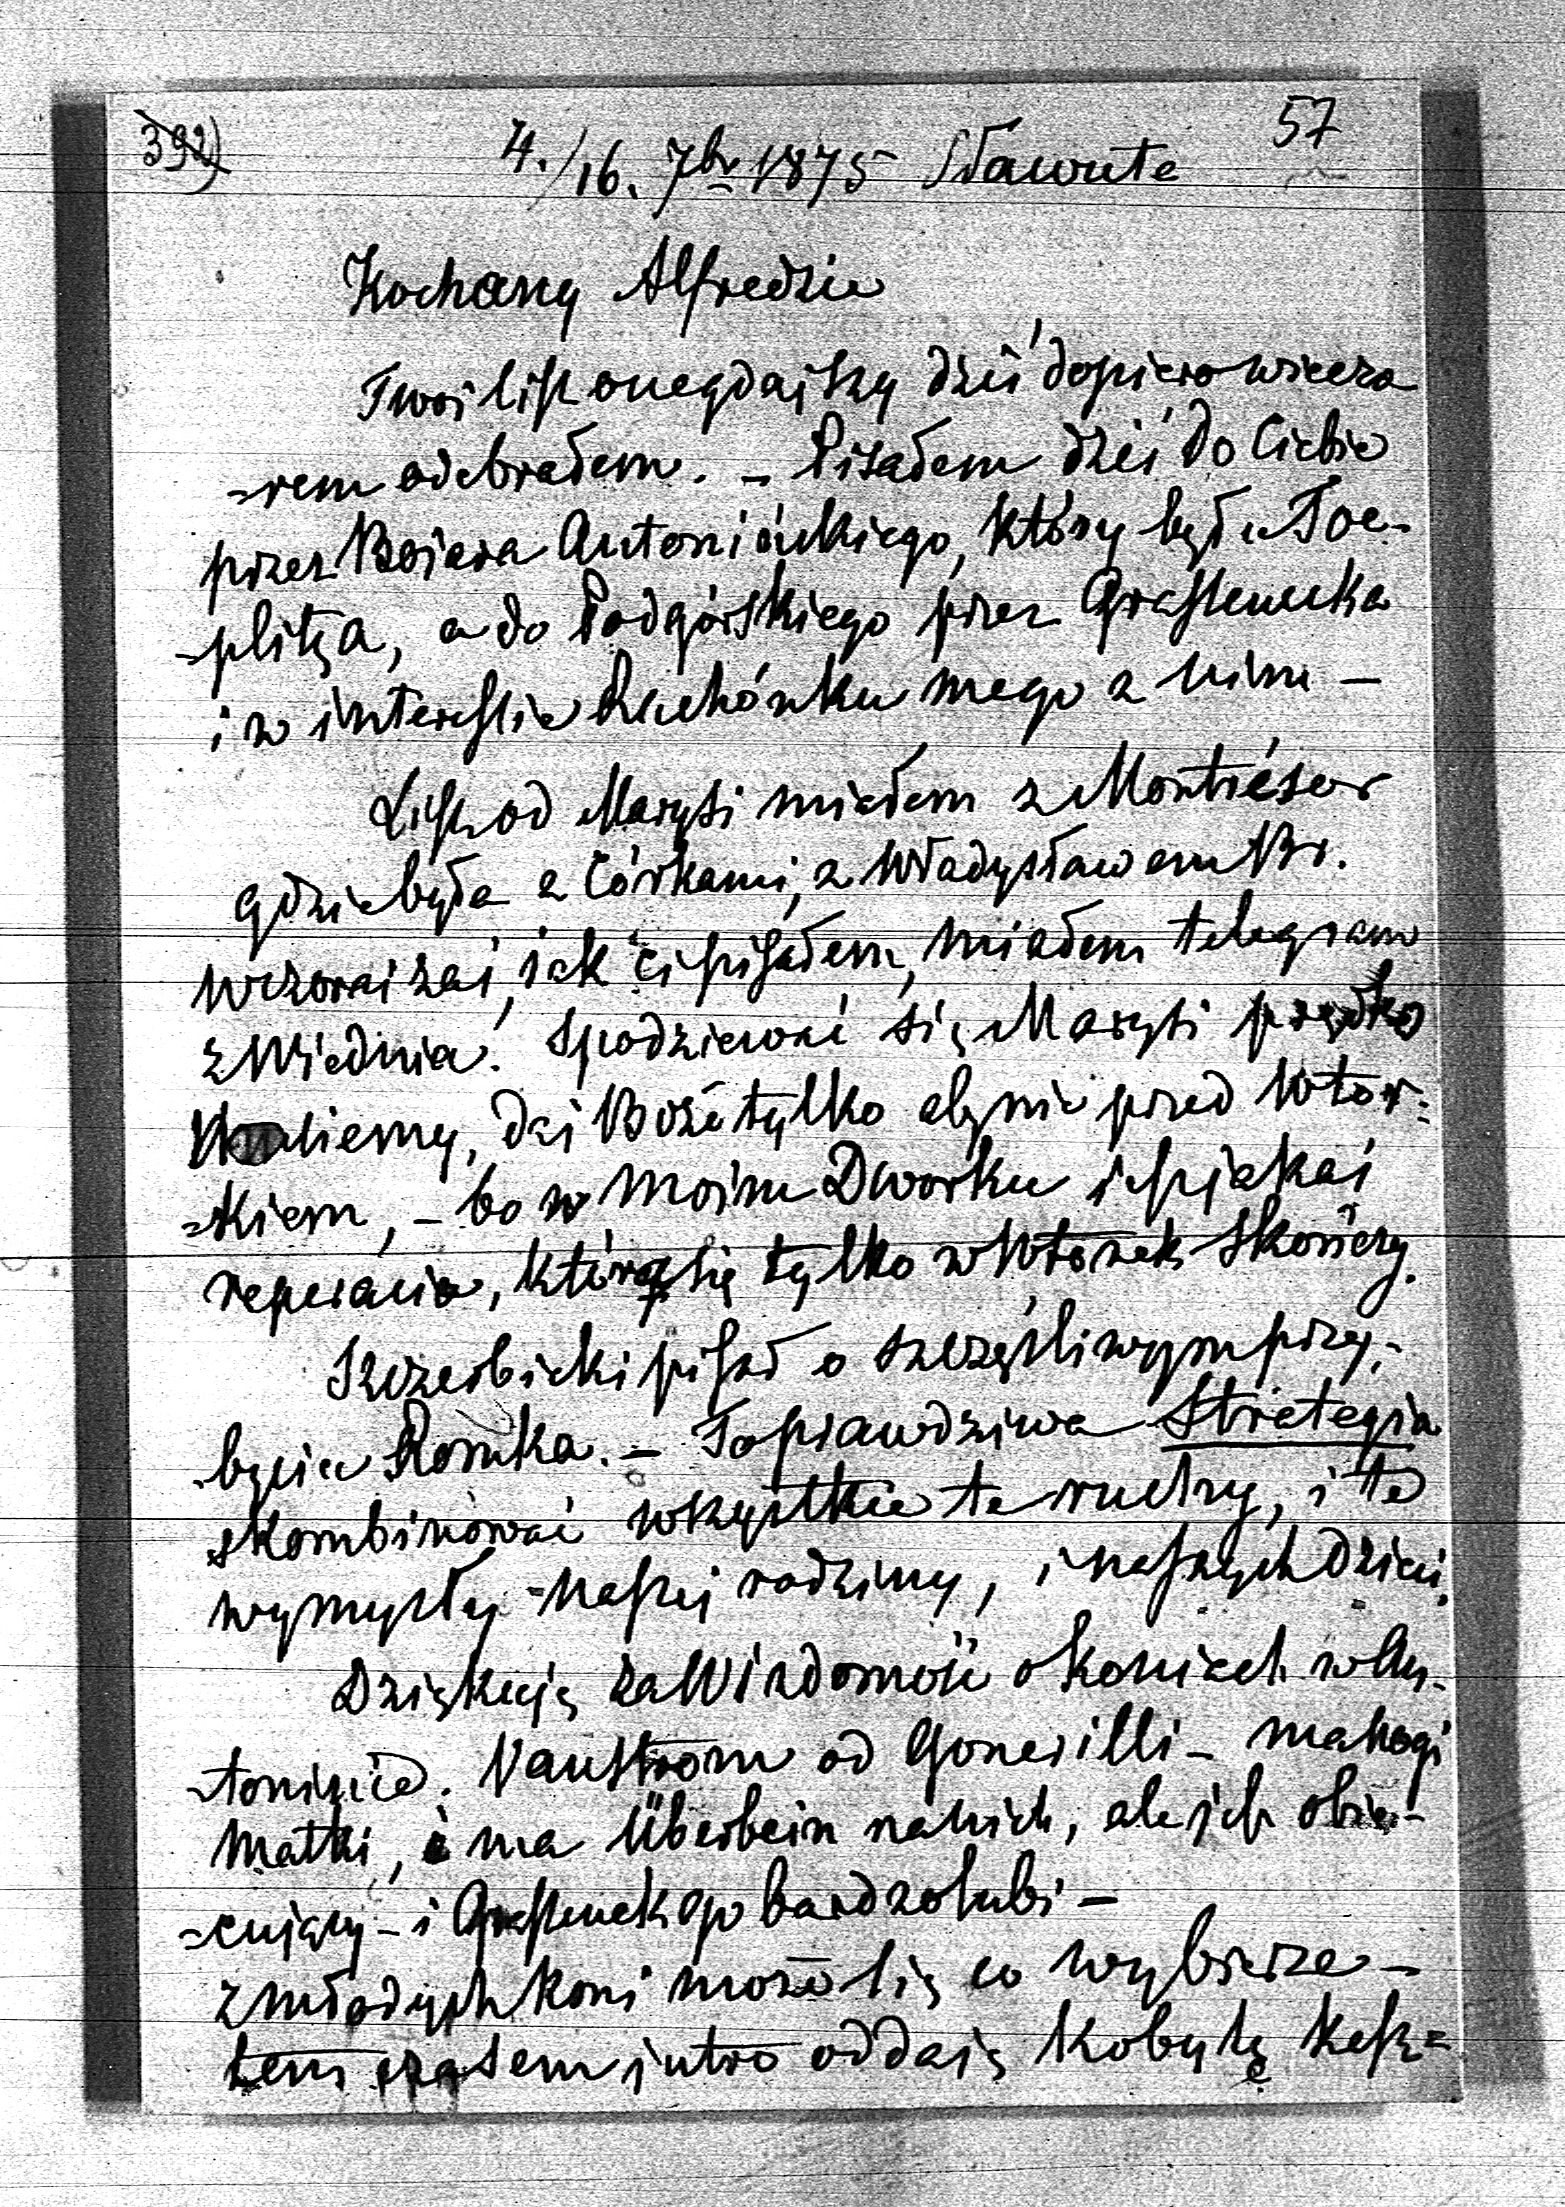 392)
57
4./16. 7br 1875 Sławuta
Kochany Alfredzie
Twoi list onegdaiszy dziś dopiero wieczo
=rem odebrałem. – Pisałem dziś do Ciebie
przez Bojara Antonińskiego, który był u Toe-
-plitza, a do Podgórskiego przez
i w interessie Rachunku mego z nim –
List od Marysi miałem z Montrésor
gdzie była z Córkami, z Władysławem Br.
wczorai zaś, jak Ci pisałem, miałem telegram
z Wiednia. Spodziewać się Marysi prędko
, dai Boże tylko aby nie przed Wtor=
=kiem, – bo w moim Dworku iest jakaś
reperacia, która się tylko w Wtorek skończy.
Szczerbicki pisał o szczęśliwym przy,-
-byciu Romka. – To prawdziwa Strategia
skombinować wszystkie te ruchy, i te
wymysły naszej rodziny, i naszych dzieci.
Dziękuję za Wiadomość o koniach w An-
-toninie. od Gonerilli – ma nogi
Matki, i ma Überbein na nich, ale jest obie-
=cujący – i go bardzo lubi –
z młodych koni może się co wybierze –
tem czasem jutro oddaję Kobyłę Kasz=